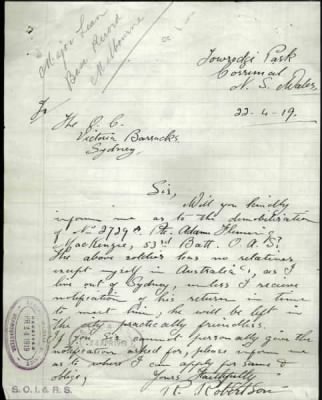 Major Lean
Base Record
Melbourne
Towradgi Park
Corrimal
N. S. Wales
22-4-19.
To
The O. C.
Victoria Barracks
Sydney.
Sir,
Will you kindly
inform me as to the demobilisation
of No 2729 Pt. Adam Fleming
MacKenzie, 53rd Batt.
The above soldier has no relatives
except myself in Australia, as I
live out of Sydney, unless I receive
notification of his return in time
to meet him, he will be left in
the city practically friendless.
If you cannot personally give the
notification asked for, please inform me
as to where I can apply for same &
oblige,
Yours Faithfully
R. Robertson
S. O. I. & R. S.